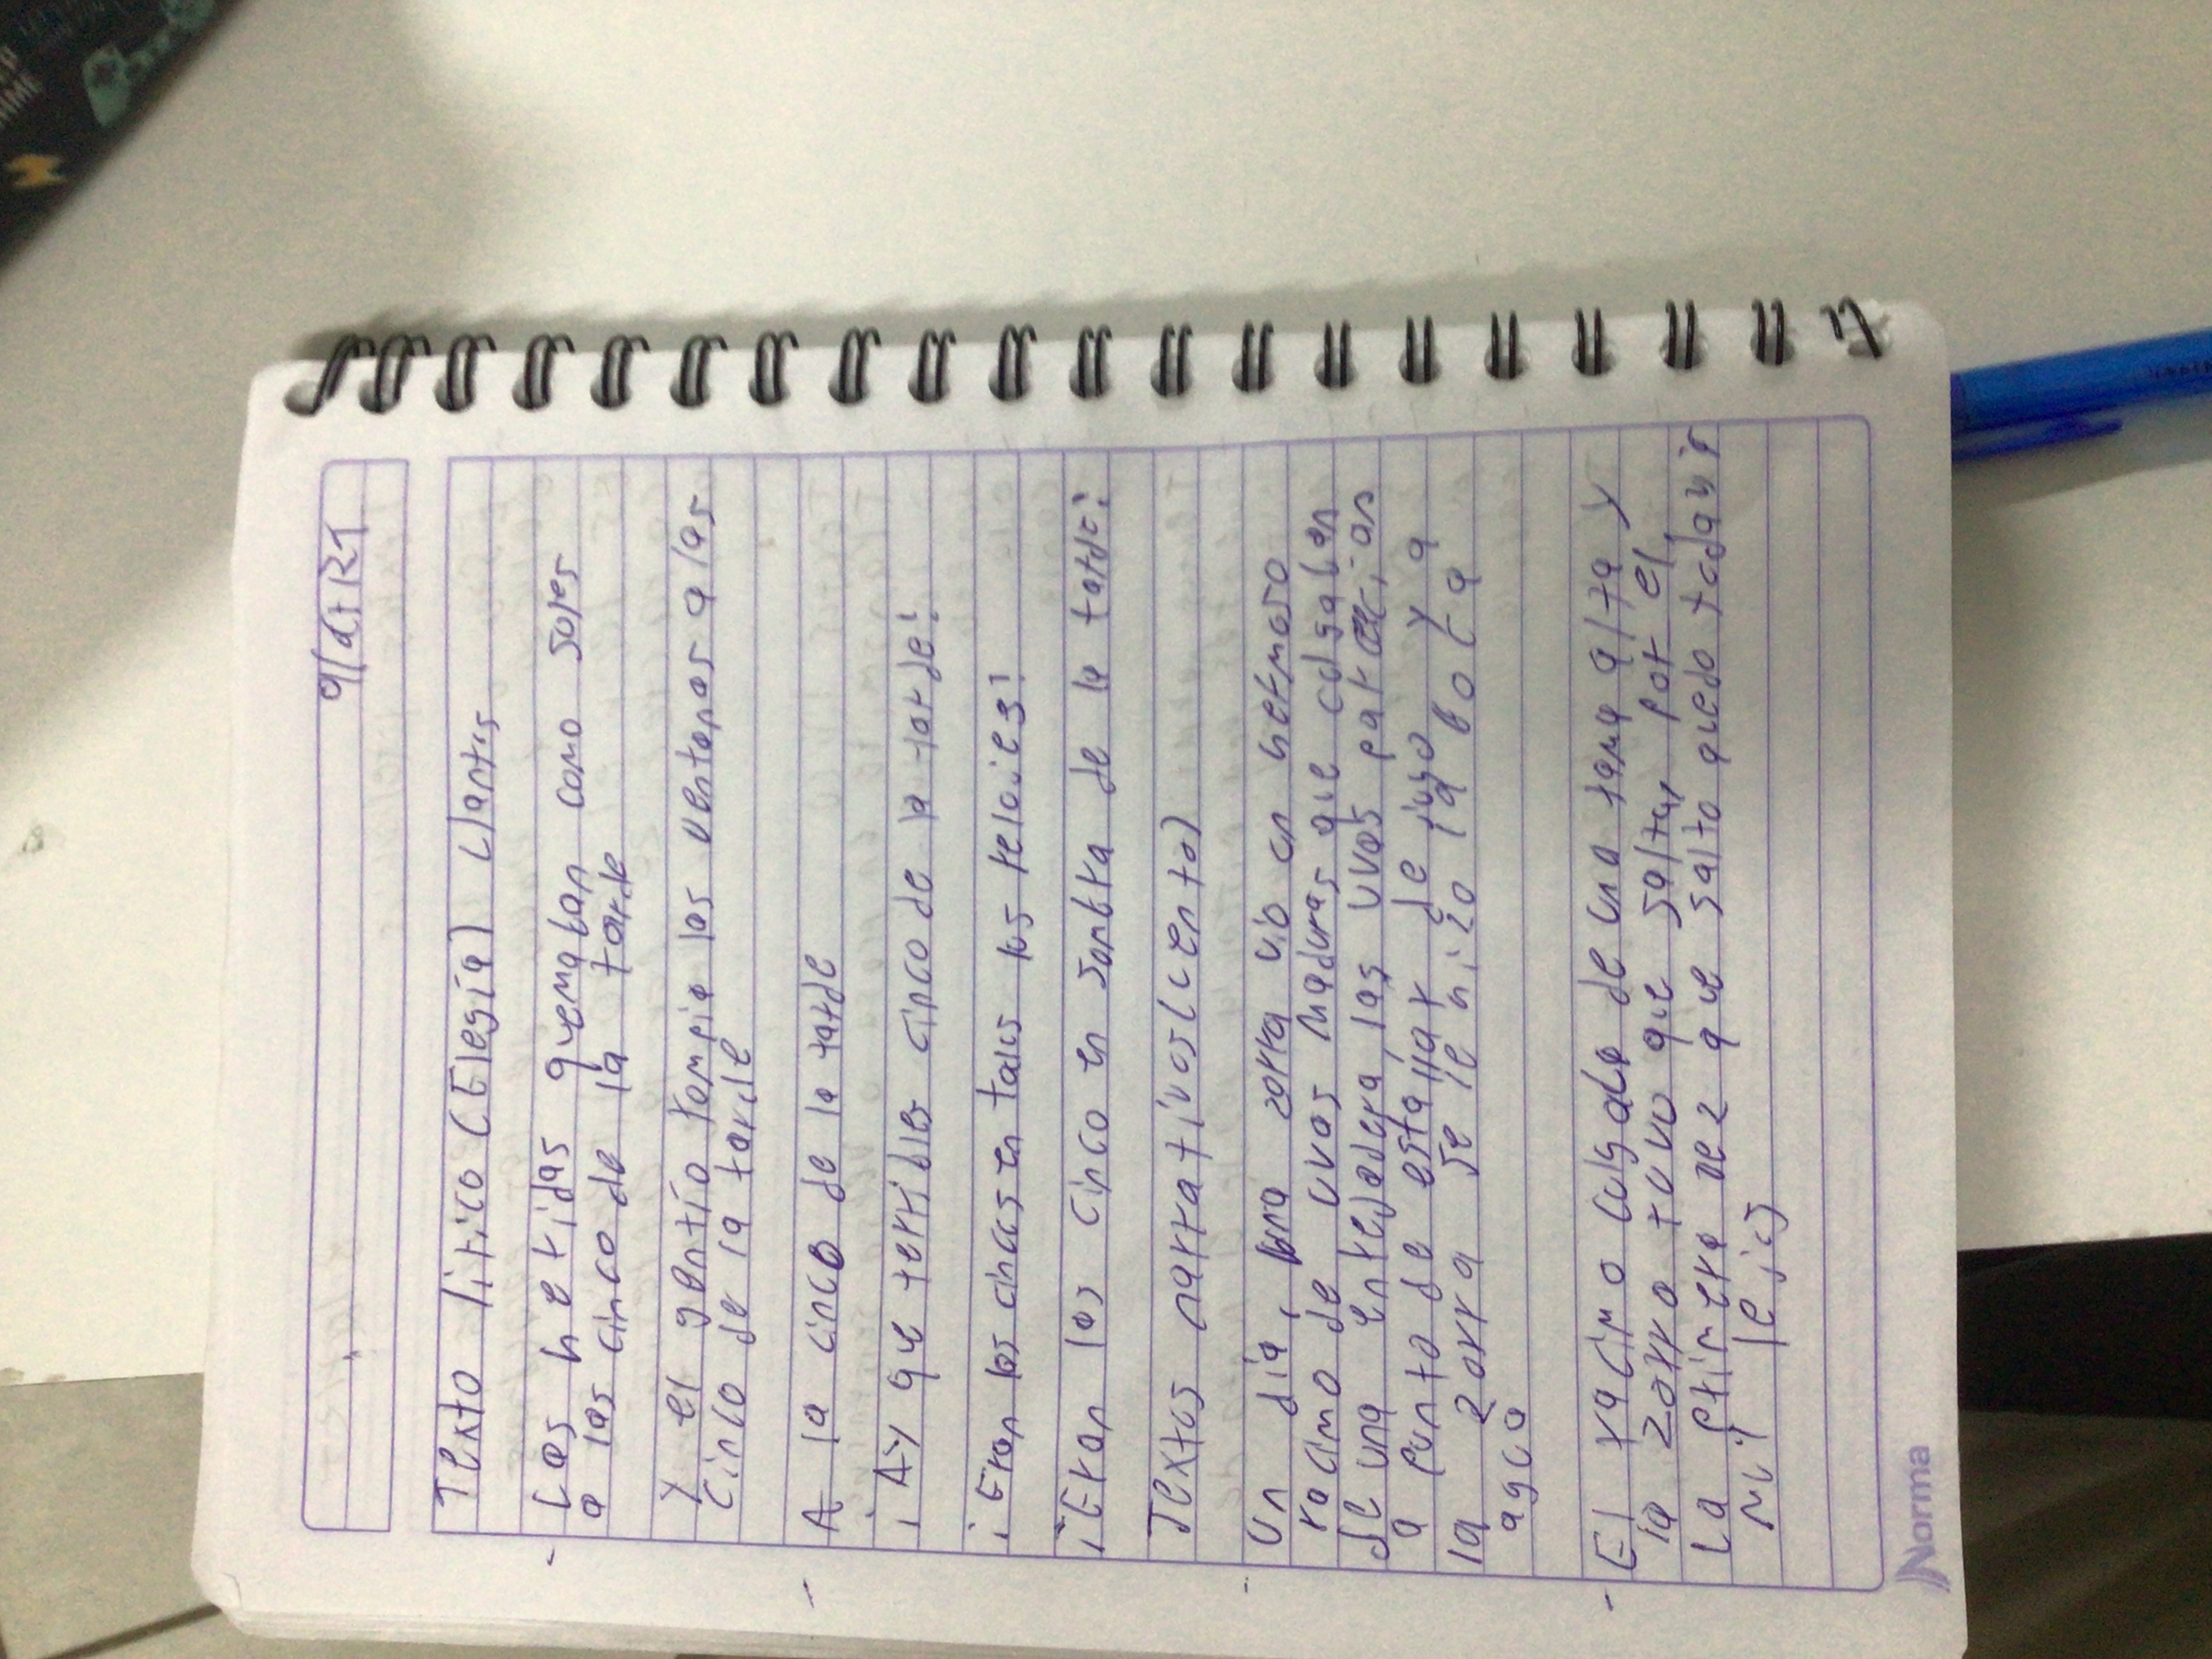 Texto lírico (Elegía) Llantes
Las heridas quemaban como soles
a las cinco de la tarde
y el gentío rompia las ventanas a las
cinco de la tarde
A la cinco de la tarde
¡Ay que terribles cinco de la tarde!
¡Eran las cincos en todos los reloies!
¡Eran las cinco en sombra de la tarde!
Textos narrativos (cuento)
Un dia, una zorra vio un hermoso
racimo de uvas maduras que colgaban
de una enredadera, las uvas parecian
a punto de estallar de jugo y a
la zorra se le hizo la boca
agua
El racimo colgado de una rama alta y
la zorra tuvo que saltar por el,
La primera vez que salto quedo todavia
muy lejos
Norma